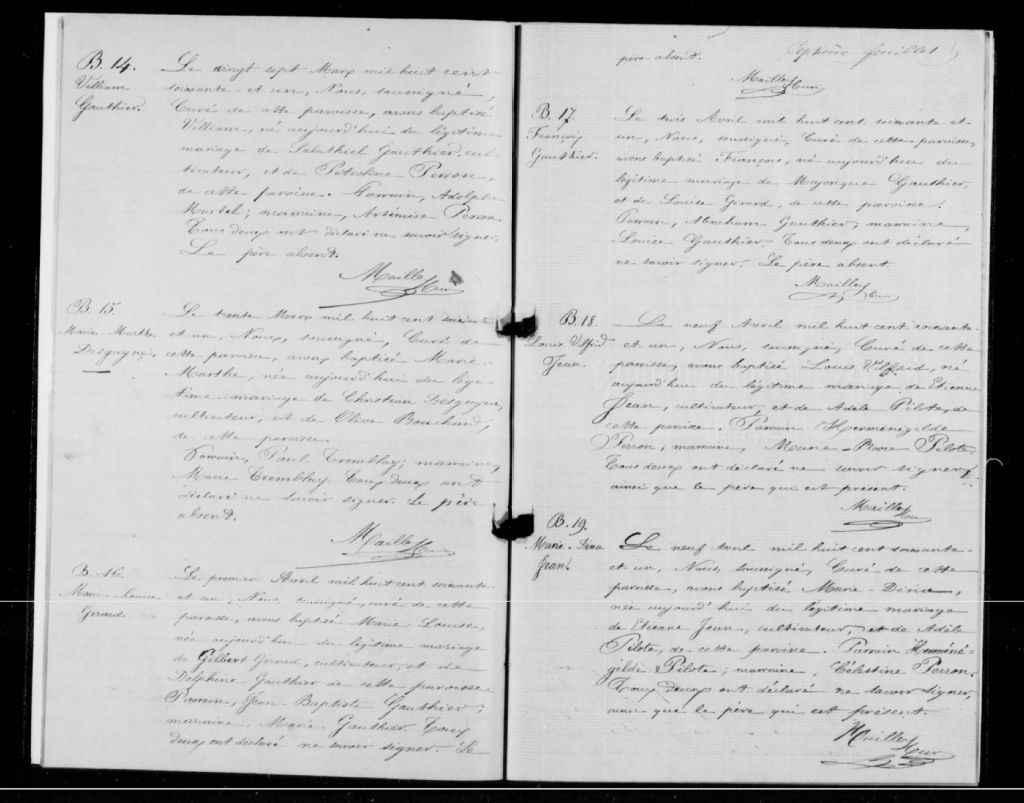 B. 14.
William
Gauthier.
Le vingt sept Mars mil huit cent
soixante-et un, Nous, soussigné,
Curé de cette paroisse, avons baptisé
William, né aujourd'hui du légitime
mariage de Salathiel Gauthier, cul-
tivateur, et de Pétroline Perron,
de cette paroisse. Parrain, Adolphe
Martel; marraine, Artémise Perron.
Tous deux ont déclaré ne savoir signer.
Le père absent.
Mailley
Curé
B. 15.
Marie-Marthe
Desgagné,
Le trente Mars mil huit cent soixante
et un, Nous, soussigné, Curé de
cette paroisse, avons baptisé Marie-
Marthe, née aujourd'hui du légi-
time mariage de Christian Desgagné,
cultivateur, et de Olive Bouchard,
de cette paroisse.
Parrain, Paul Tremblay; marraine,
Marie Tremblay. Tous deux ont
déclaré ne savoir signer. Le père
absent.
Mailley
Curé
B. 16.
Marie-Louise
Girard
Le premier Avril mil huit cent soixante
et un, Nous, soussigné, curé de cette
paroisse, avons baptisé Marie-Louise,
née aujourd'hui du légitime mariage
de Gilbert Girard, cultivateur, et de
Delphine Gauthier de cette paroisse.
Parrain, Jean-Baptiste Gauthier;
marraine, Marie Gauthier. Tous
deux ont déclaré ne savoir signer. Le
père absent.
Mailley
Curé
B. 17.
François
Gauthier.
Le trois Avril mil huit cent soixante et-
un, Nous, soussigné, Curé de cette paroisse,
avons baptisé François, né aujourd'hui du
légitime mariage de Majorique Gauthier,
et de Louise Girard, de cette paroisse.
Parrain, Abraham Gauthier; marraine,
Louise Gauthier. Tous deux ont déclaré
ne savoir signer. Le père absent.
Mailley
Curé
B. 18.
Louis Vilfrid
Jean.
Le neuf Avril mil huit cent soixante-
et un, Nous, soussigné, Curé de cette
paroisse, avons baptisé Louis Vilfrid, né
aujourd'hui du légitime mariage de Etienne
Jean, cultivateur, et de Adèle Pilote, de
cette paroisse. Parrain Herménégilde
Perron; marraine, Marie-Rose Pilote.
Tous deux ont déclaré ne savoir signer,
ainsi que le père qui est présent.
Mailley
Curé
B. 19.
Marie-Dina
Jean.
Le neuf Avril mil huit cent soixante-
et-un, Nous, soussigné, Curé de cette
paroisse, avons baptisé Marie-Dina,
née aujourd'hui du légitime mariage
de Etienne Jean, cultivateur, et de Adèle
Pilote, de cette paroisse. Parrain Herméné-
gilde Pilote; marraine, Célestine Perron.
Tous deux ont déclaré ne savoir signer,
ainsi que le père qui est présent.
Mailley
Curé